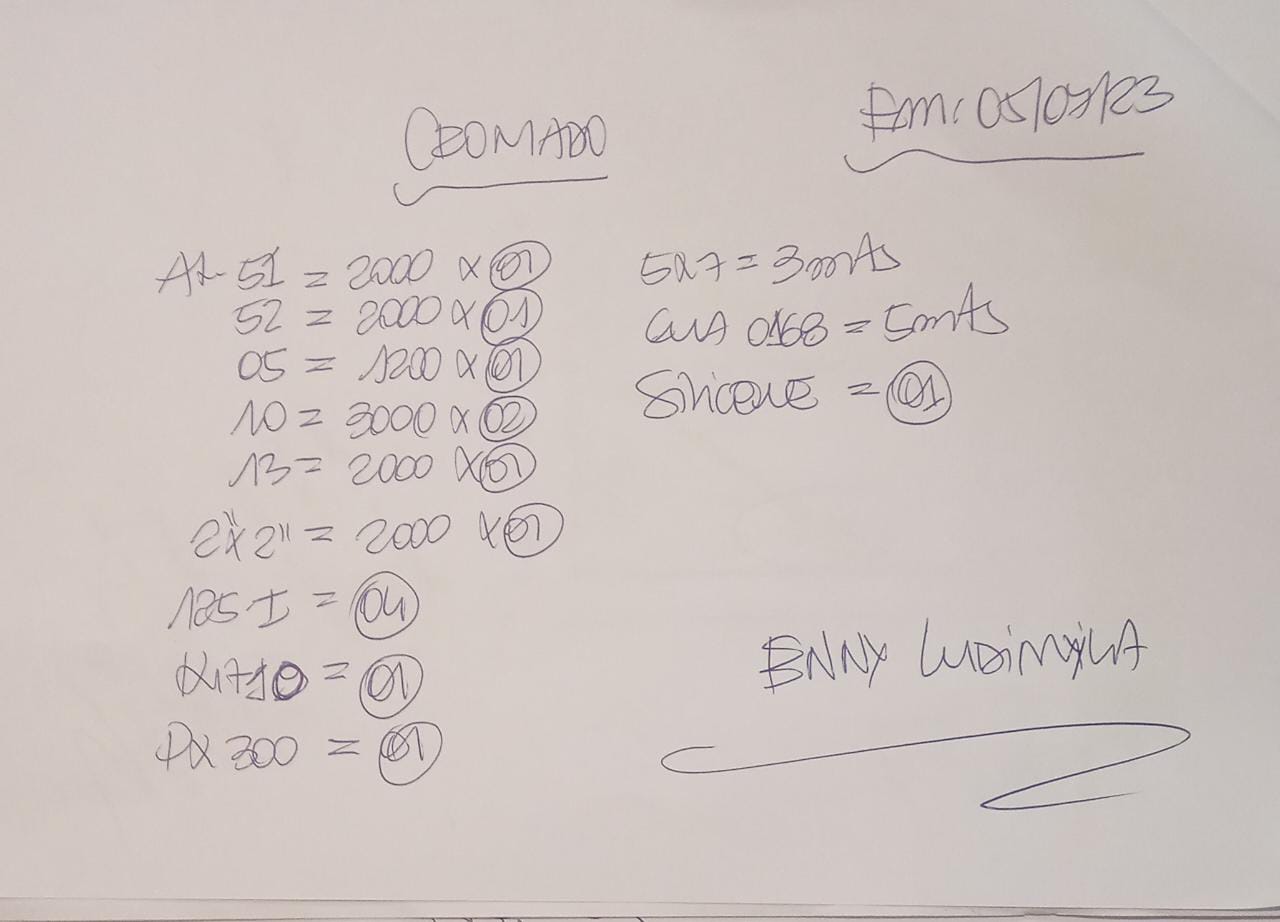 CROMADO
Em: 05/07/23
AL-51 = 2000 x 01
52 = 2000 x 01
05 = 1200 x 01
10 = 3000 x 02
13 = 2000 x 01
2"x2" = 2000 x 01
125 I = 04
= 01
PX 300 = 01
5x7 = 3mts
GUA 0168 = 5mts
Silicone = 01
ENNY LUDIMYLA